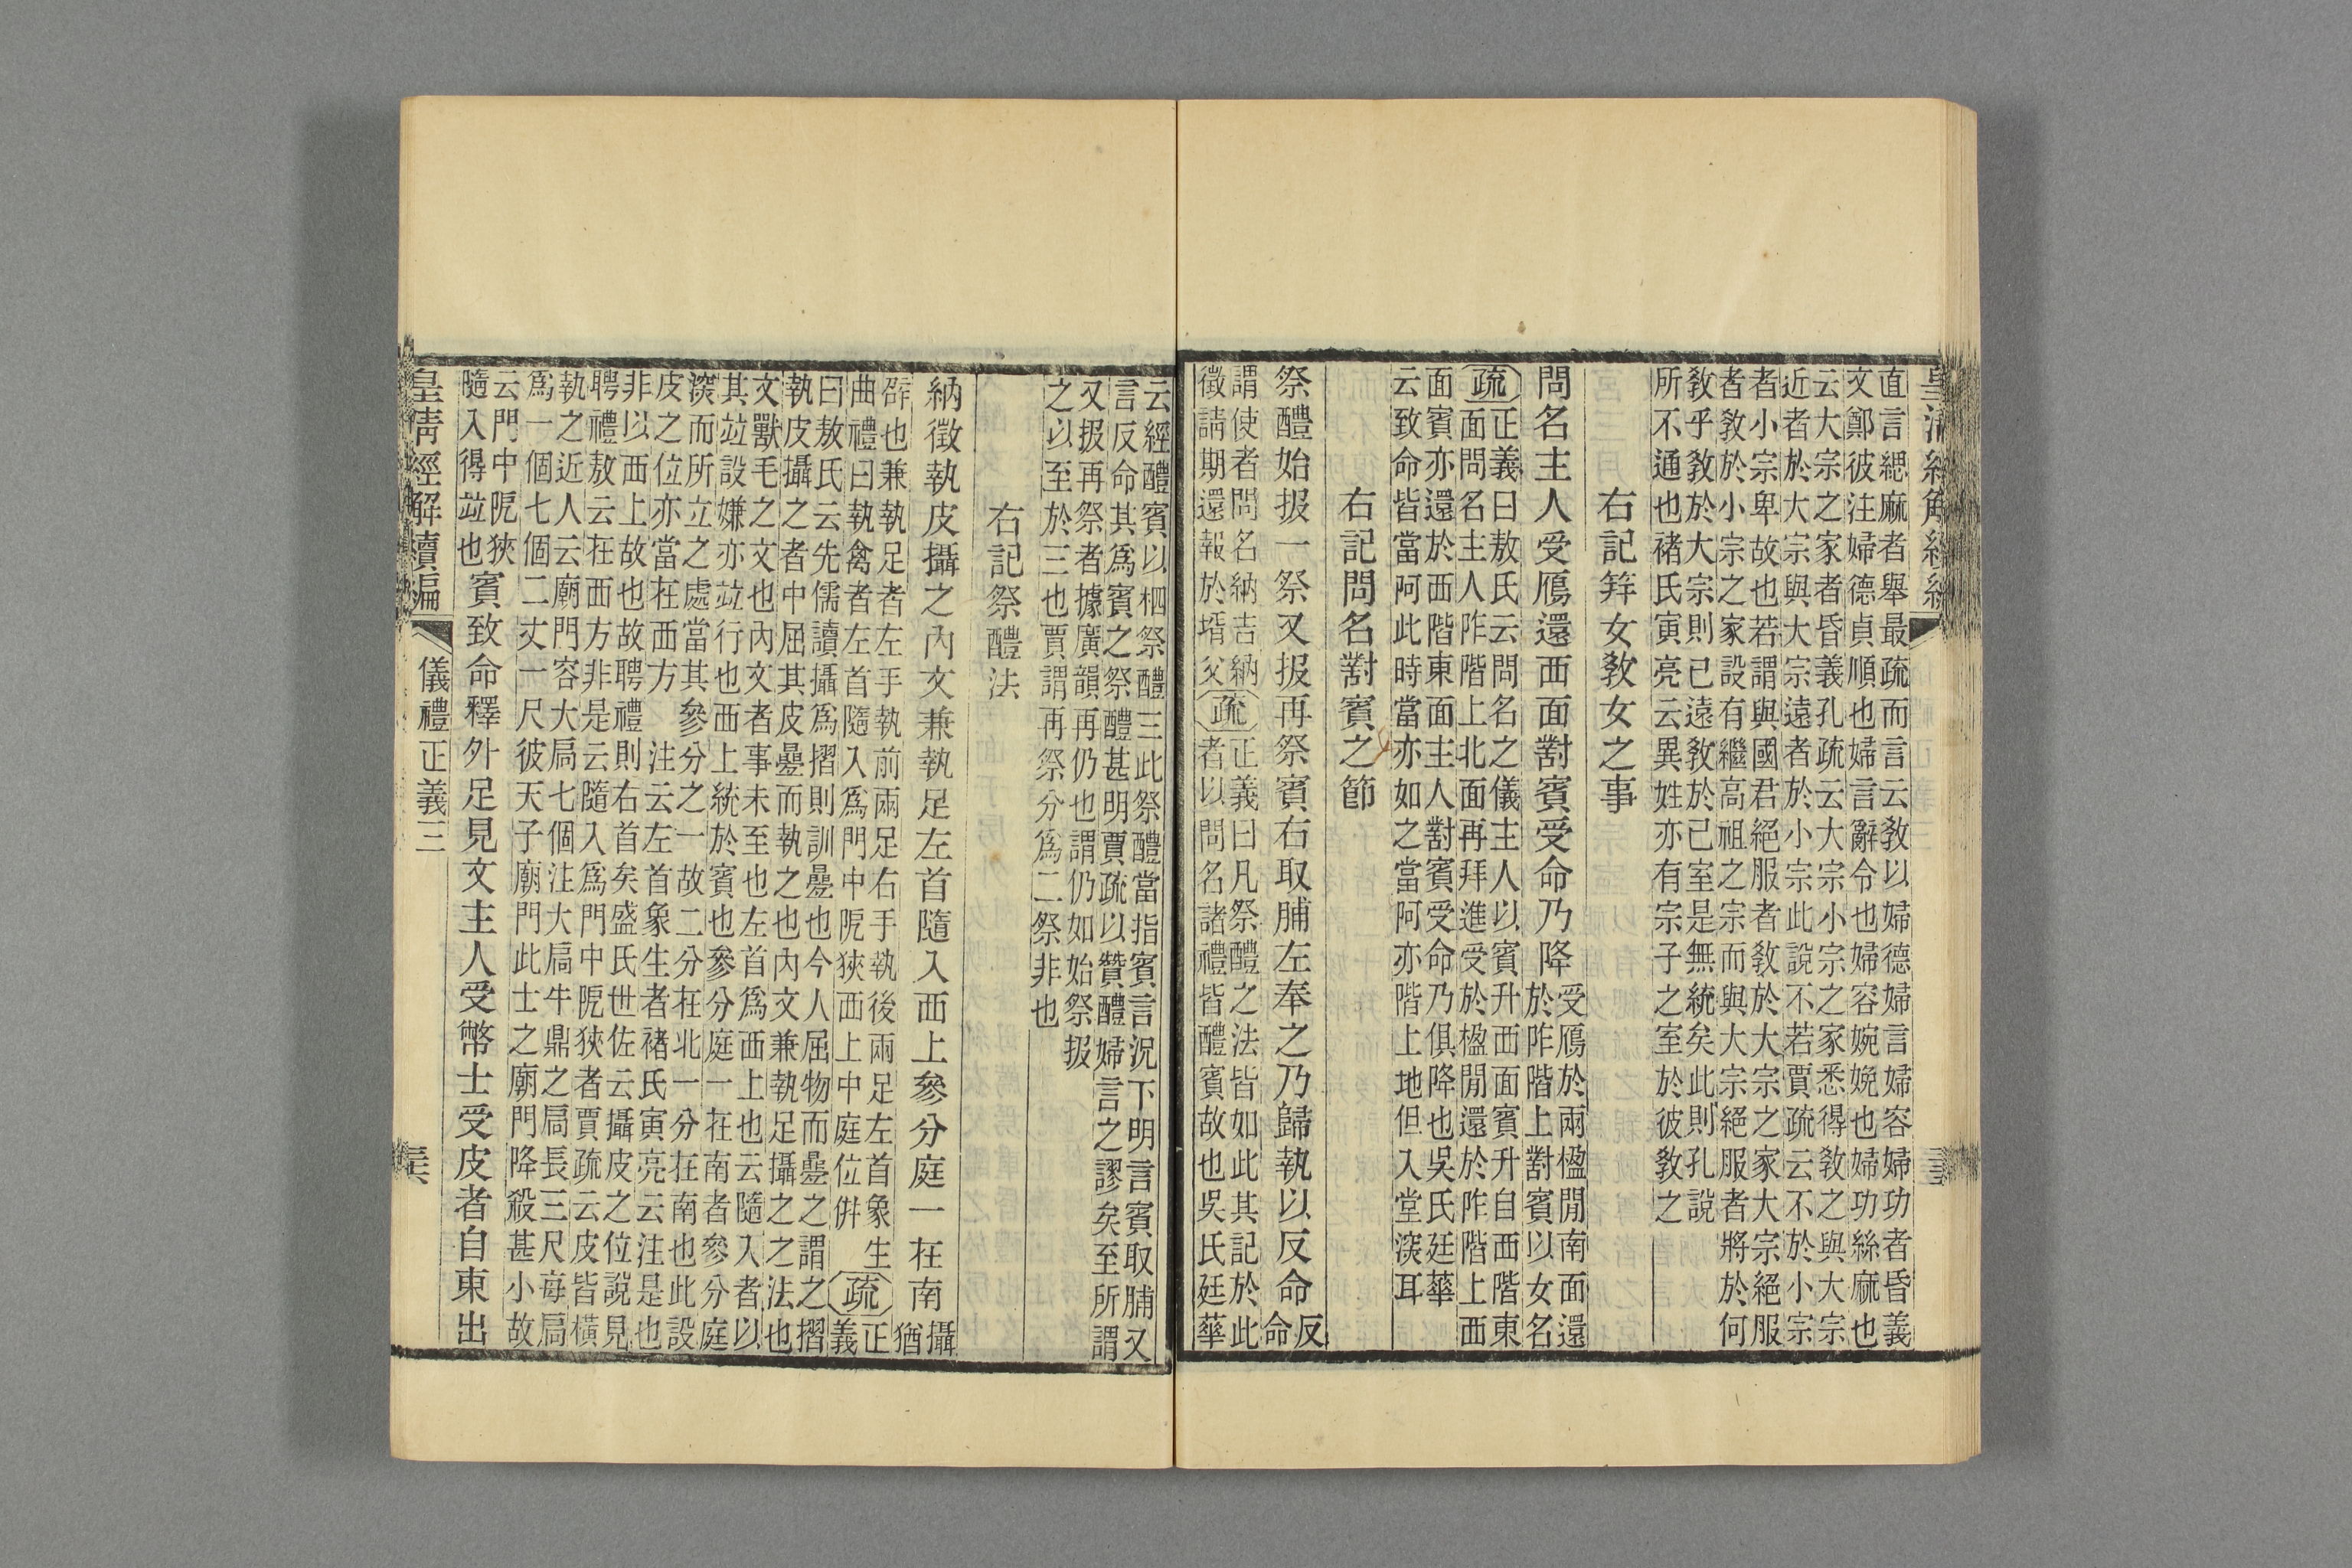 直言緦麻者舉最疏而言云敎以婦德婦言婦容婦功者昏義
文鄭彼注婦德貞順也婦言辭令也婦容婉娩也婦功絲麻也
云大宗之家者昏義孔疏云大宗小宗之家悉得敎之與大宗
近者於大宗與大宗遠者於小宗此說不若賈疏云不於小宗
者小宗卑故也若謂與國君絕服者敎於大宗之家大宗絕服
者敎於小宗之家設有繼高祖之宗而與大宗絕服者將於何
敎乎敎於大宗則已遠敎於己室是無統矣此則孔說
所不通也褚氏寅亮云異姓亦有宗子之室於彼敎之
右記筓女敎女之事
問名主人受鴈還西面對賓受命乃降
受鴈於兩楹閒南面還
於阼階上對賓以女名
疏
正義曰敖氏云問名之儀主人以賓升西面賓升自西階東
面問名主人阼階上北面再拜進受於楹閒還於阼階上西
面賓亦還於西階東面主人對賓受命乃俱降也吳氏廷華
云致命皆當阿此時當亦如之當阿亦階上地但入堂深耳
右記問名對賓之節
祭醴始扱一祭又扱再祭賓右取脯左奉之乃歸執以反命
反
命
謂使者問名納吉納
徵請期還報於壻父
疏
正義曰凡祭醴之法皆如此其記於此
者以問名諸禮皆醴賓故也吳氏廷華
云經醴賓以柶祭醴三此祭醴當指賓言況下明言賓取脯又
言反命其爲賓之祭醴甚明賈疏以贊醴婦言之謬矣至所謂
又扱再祭者據廣韻再仍也謂仍如始祭扱
之以至於三也賈謂再祭分爲二祭非也
右記祭醴法
納徵執皮攝之內文兼執足左首隨入西上參分庭一在南
攝
猶
辟也兼執足者左手執前兩足右手執後兩足左首象生
曲禮曰執禽者左首隨入爲門中阨狹西上中庭位併
疏
正
義
曰敖氏云先儒讀攝爲摺則訓疊也今人屈物而疊之謂之摺
執皮攝之者中屈其皮疊而執之也內文兼執足攝之之法也
文獸毛之文也內文者事未至也左首爲西上也云隨入者以
其竝設嫌亦竝行也西上統於賓也參分庭一在南者參分庭
深而所立之處當其參分之一故二分在北一分在南也此設
皮之位亦當在西方　注云左首象生者褚氏寅亮云注是也
非以西上故也故聘禮則右首矣盛氏世佐云攝皮之位說見
聘禮敖云在西方非是云隨入爲門中阨狹者賈疏云皮皆橫
執之近人云廟門容大扃七個注大扃牛鼎之扃長三尺每扃
爲一個七個二丈一尺彼天子廟門此士之廟門降殺甚小故
云門中阨狹
隨入得竝也
賓致命釋外足見文主人受幣士受皮者自東出
皇淸經解續編
儀禮正義三